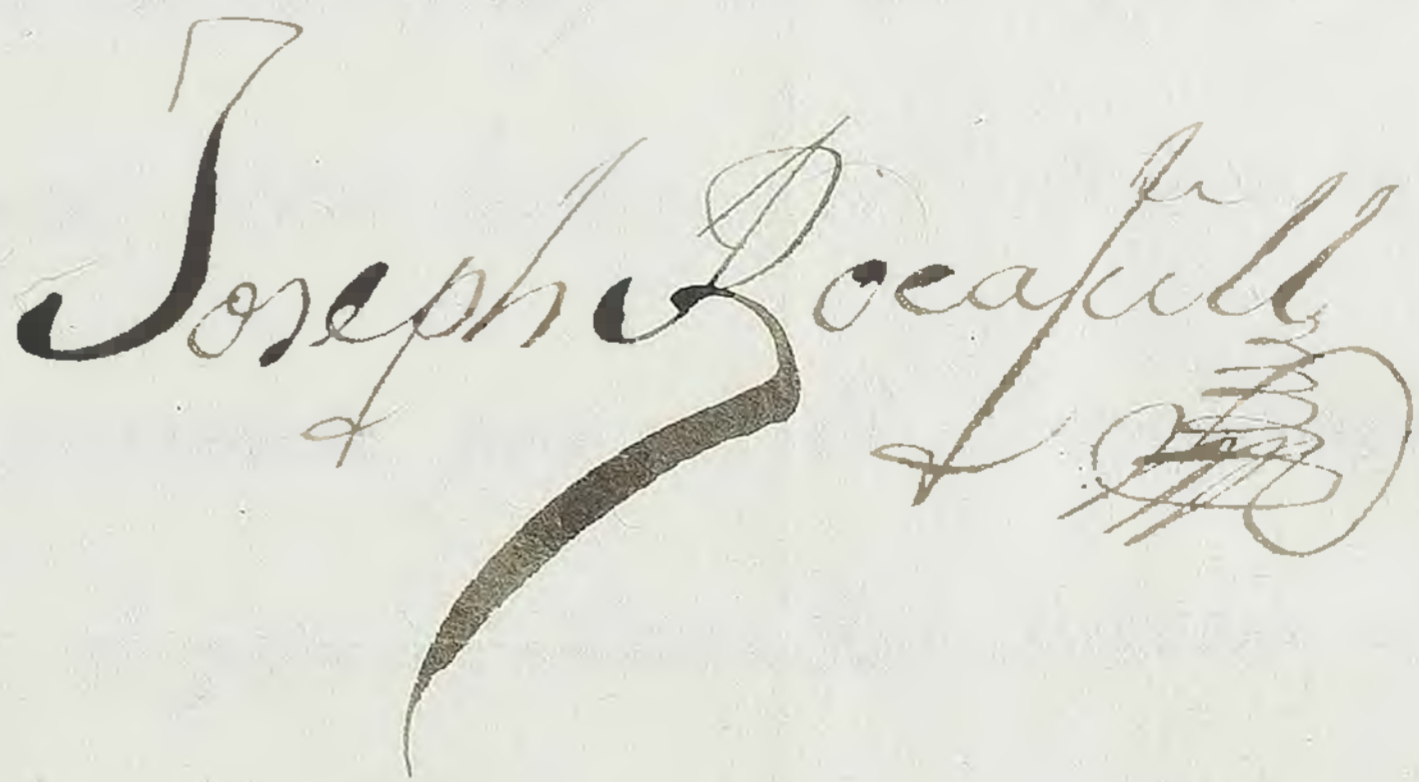 Joseph Rocafull